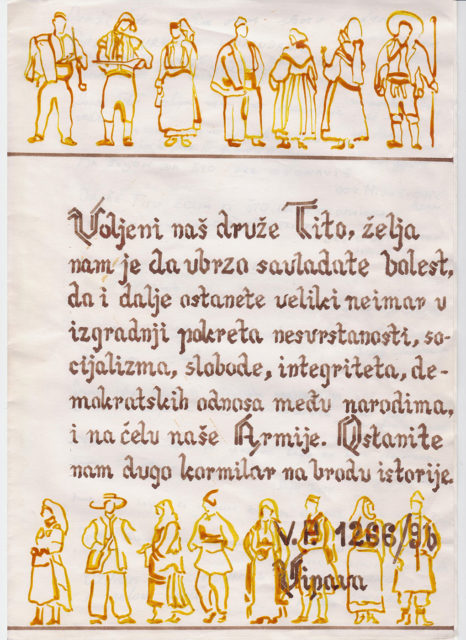 Voljeni naš druže Tito, želja
nam je da ubrzo savladate bolest,
da i dalje ostanete veliki neimar u
izgradnji pokreta nesvrstanosti, so-
cijalizma, slobode, integriteta, de-
mokratskih odnosa među narodima,
i na čelu naše Armije. Ostanite
nam dugo kormilar na brodu istorije.
V.P. 1266/9b
Vipava